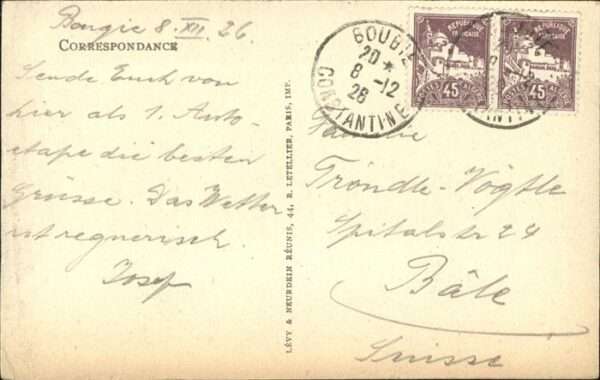 Bougie 8. XII. 26.
CORRESPONDANCE
Sende Euch von
hier als 1. Auto-
etape die besten
Grüsse. Das Wetter
ist regnerisch.
Josef
LÉVY & NEURDEIN RÉUNIS, 44, R. LETELLIER, PARIS, IMP.
BOUGIE
20 *
8 -12
26
CONSTANTINE
RÉPUBLIQUE
FRANÇAISE
45
45
Familie
Tröndle-Vögtle
Spitalstr 24
Bâle
Suisse